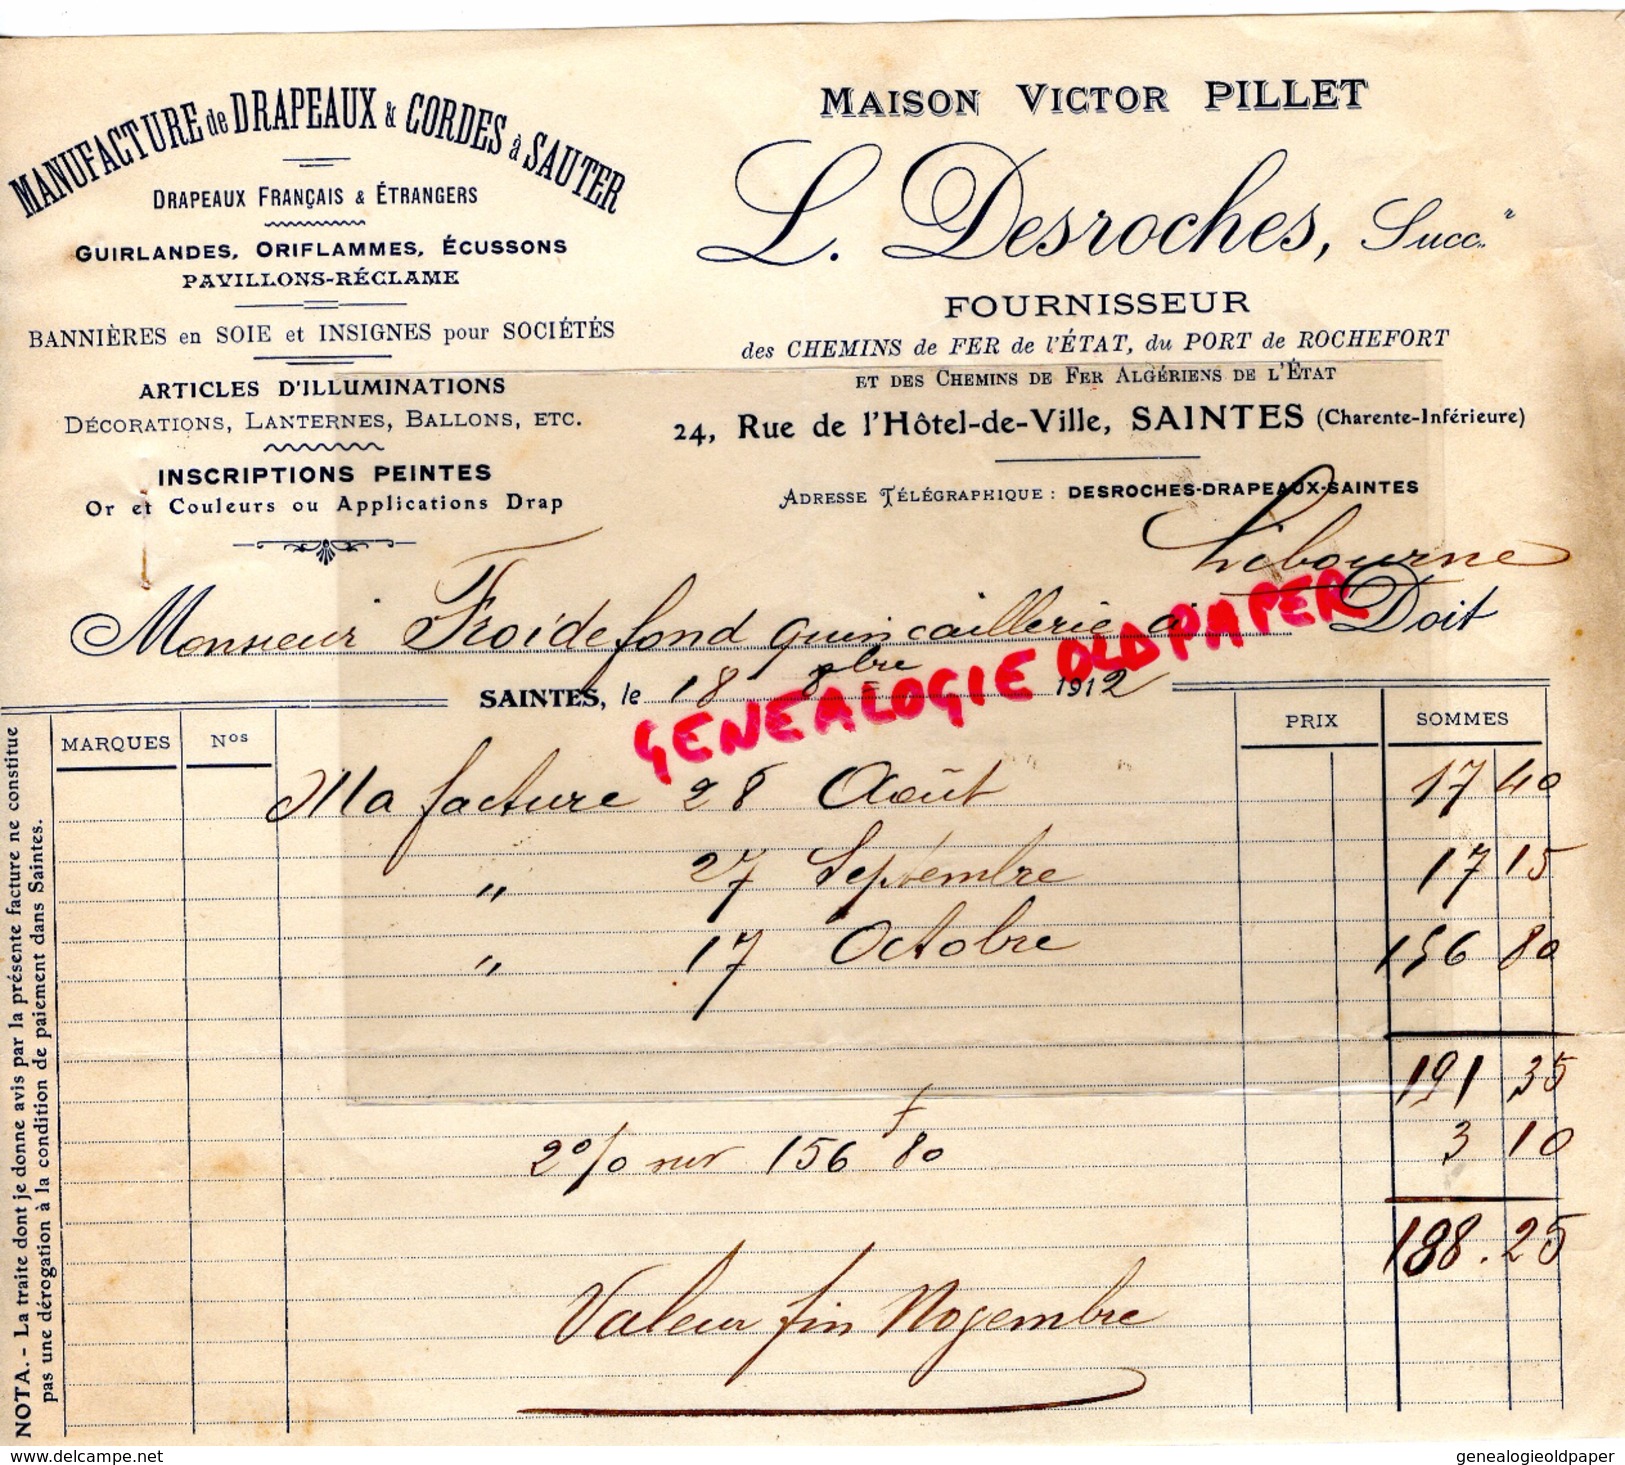 MANUFACTURE de DRAPEAUX & CORDES à SAUTER
DRAPEAUX FRANÇAIS & ÉTRANGERS
GUIRLANDES, ORIFLAMMES, ÉCUSSONS
PAVILLONS-RÉCLAME
BANNIÈRES en SOIE et INSIGNES pour SOCIÉTÉS
ARTICLES D'ILLUMINATIONS
DÉCORATIONS, LANTERNES, BALLONS, ETC.
INSCRIPTIONS PEINTES
Or et Couleurs ou Applications Drap
MAISON VICTOR PILLET
L. Desroches, Succr
FOURNISSEUR
des CHEMINS de FER de l'ÉTAT, du PORT de ROCHEFORT
ET DES CHEMINS DE FER ALGÉRIENS DE L'ÉTAT
24, Rue de l'Hôtel-de-Ville, SAINTES (Charente-Inférieure)
ADRESSE TÉLÉGRAPHIQUE : DESROCHES-DRAPEAUX-SAINTES
Libourne
Monsieur Froidefond quincaillerie à Doit
SAINTES, le 18 8bre 1912
GENEALOGIE OLDPAPER
MARQUES Nos PRIX SOMMES
Ma facture 28 Août 17 40
" 27 Septembre 17 15
" 17 Octobre 156 80
191 35
2% sur 156 f 80 3 10
188.25
Valeur fin Novembre
NOTA. - La traite dont je donne avis par la présente facture ne constitue
pas une dérogation à la condition de paiement dans Saintes.
www.delcampe.net
genealogieoldpaper